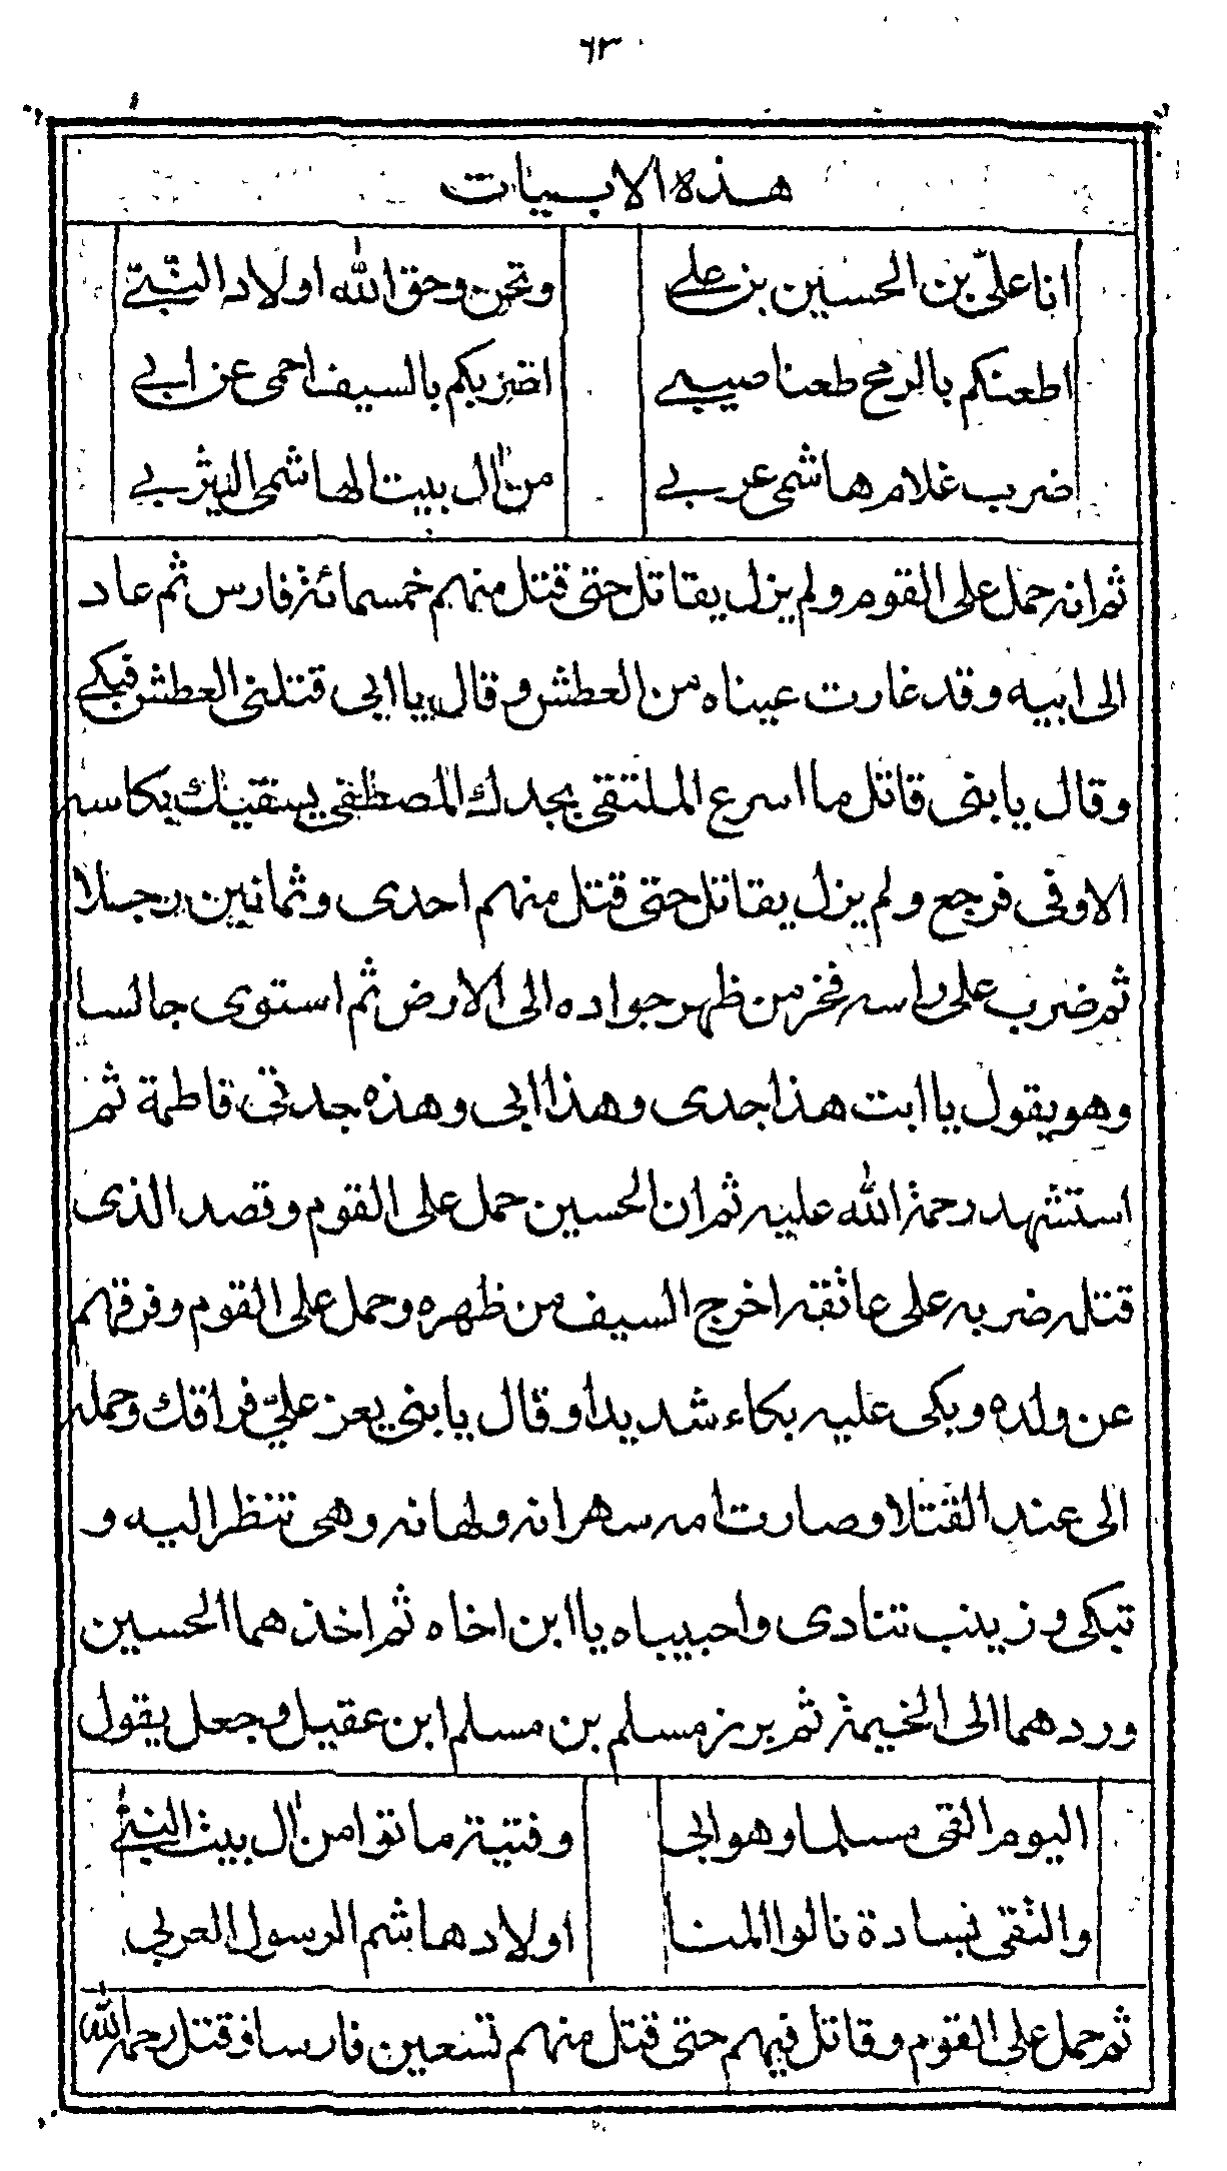 ٦٣
هذه الابيات
انا عليّ بن الحسين بن علي ونحن وحق الله اولاد النبّي
اطعنكم بالرمح طعنا صيبي اضربكم بالسيف احمى عن ابي
ضرب غلام هاشمى عربي من ال بيت الهاشمى اليثربي
ثم انه حمل على القوم ولم يزل يقاتل حتى قتل منهم خمسمائة فارس ثم عاد
الى ابيه وقد غارت عيناه من العطش وقال يا ابى قتلنى العطش فبكي
وقال يا بنى قاتل ما اسرع الملتقى بجدك المصطفى يسقيك بكاسه
الاوفى فرجع ولم يزل يقاتل حتى قتل منهم احدى وثمانين رجلا
ثم ضرب على راسه فخر من ظهر جواده الى الارض ثم استوى جالسا
وهو يقول يا ابت هذا جدى وهذا ابى وهذه جدتى فاطمة ثم
استشهد رحمة الله عليه ثم ان الحسين حمل على القوم وقصد الذى
قتله ضربه على عاتقه اخرج السيف من ظهره وحمل على القوم وفرقهم
عن ولده وبكى عليه بكاء شديدا وقال يا بنى يعز عليّ فراقك وحمله
الى عند القتلا وصارت امه سهرانه ولهانه وهى تنظر اليه و
تبكى وزينب تنادى واحبيباه يا ابن اخاه ثم اخذهما الحسين
وردهما الى الخيمة ثم برز مسلم بن مسلم ابن عقيل وجعل يقول
اليوم القى مسلما وهو ابى وفتية ماتوا من ال بيت النبي
والتقى بسادة نالوا المنا اولاد هاشم الرسول العربى
ثم حمل على القوم وقاتل فيهم حتى قتل منهم تسعين فارسا وقتل رحمه الله